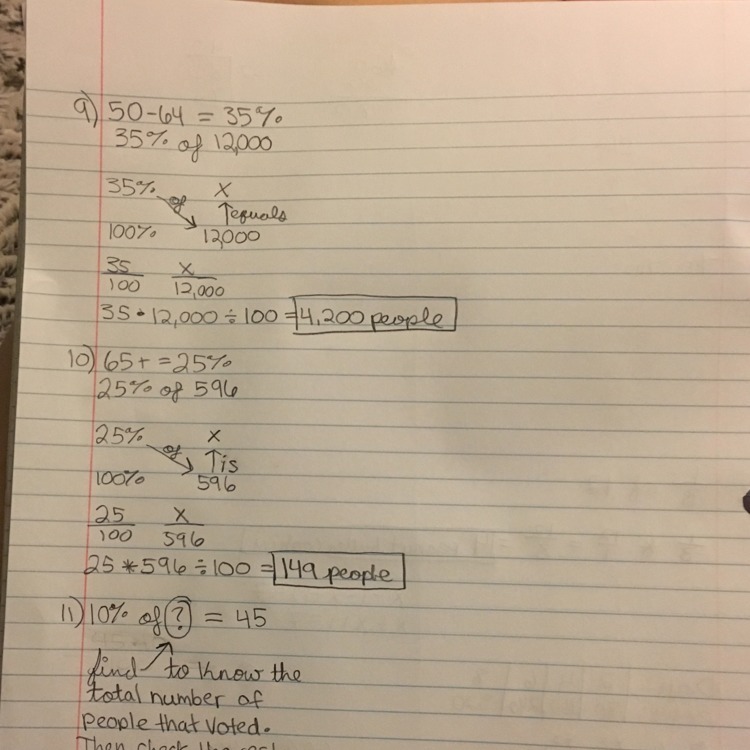 9) 50-64 = 35%
35% of 12,000
35% of X
↑equals
100% 12,000
35 X
100 12,000
35 • 12,000 ÷ 100 = 4,200 people
10) 65+ = 25%
25% of 596
25% of X
↑is
100% 596
25 X
100 596
25 * 596 ÷ 100 = 149 people
11) 10% of ? = 45
find to know the
total number of
people that voted.
Then check the